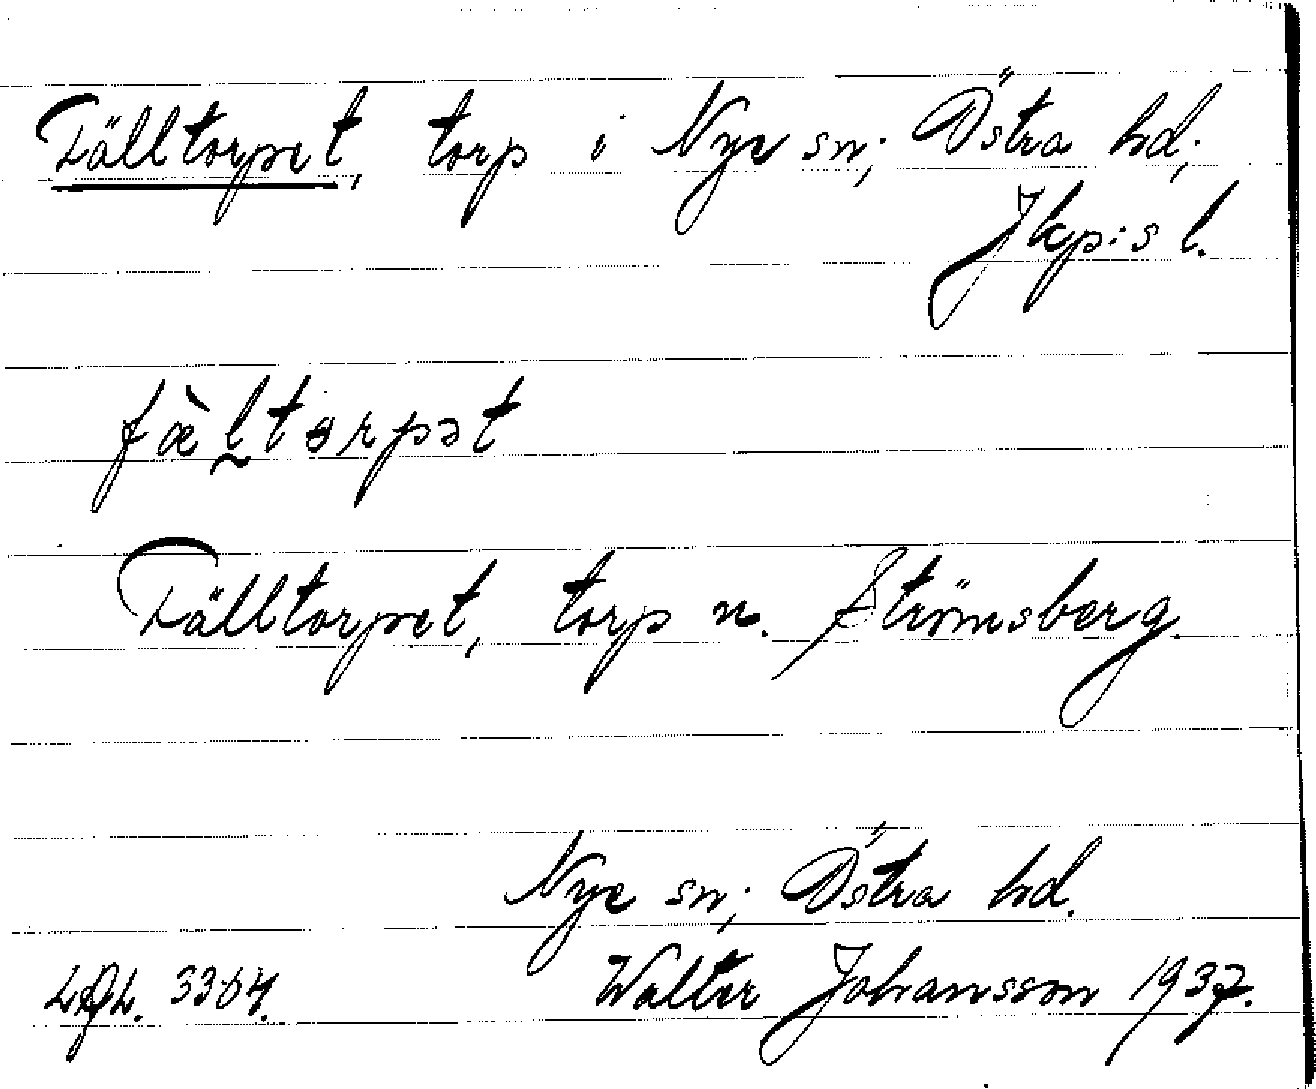 Fälltorpet, torp i Nye sn; Östra hd;
Jkp:s l.
fæ̀l̰tɘrpət
Fälltorpet, torp n. Strömsberg.
Nye sn; Östra hd.
Walter Johansson 1937.